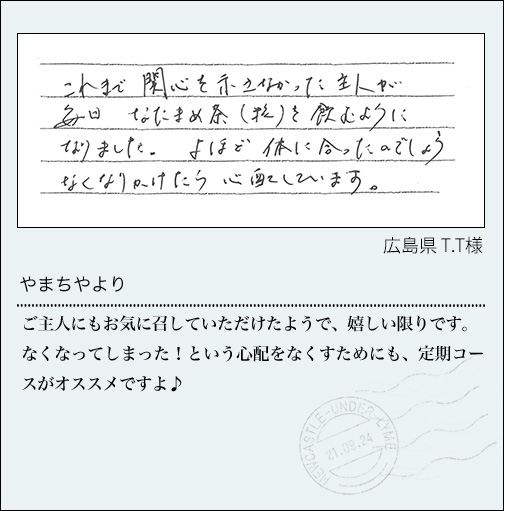 これまで 関心を示さなかった主人が
毎日 なたまめ茶(粒)を飲むように
なりました。 よほど 体に合ったのでしょう
なくなりかけたら 心配しています。
広島県 T.T様
やまちやより
ご主人にもお気に召していただけたようで、嬉しい限りです。
なくなってしまった！という心配をなくすためにも、定期コー
スがオススメですよ♪
NEWCASTLE-UNDER-LYME
21.09.24